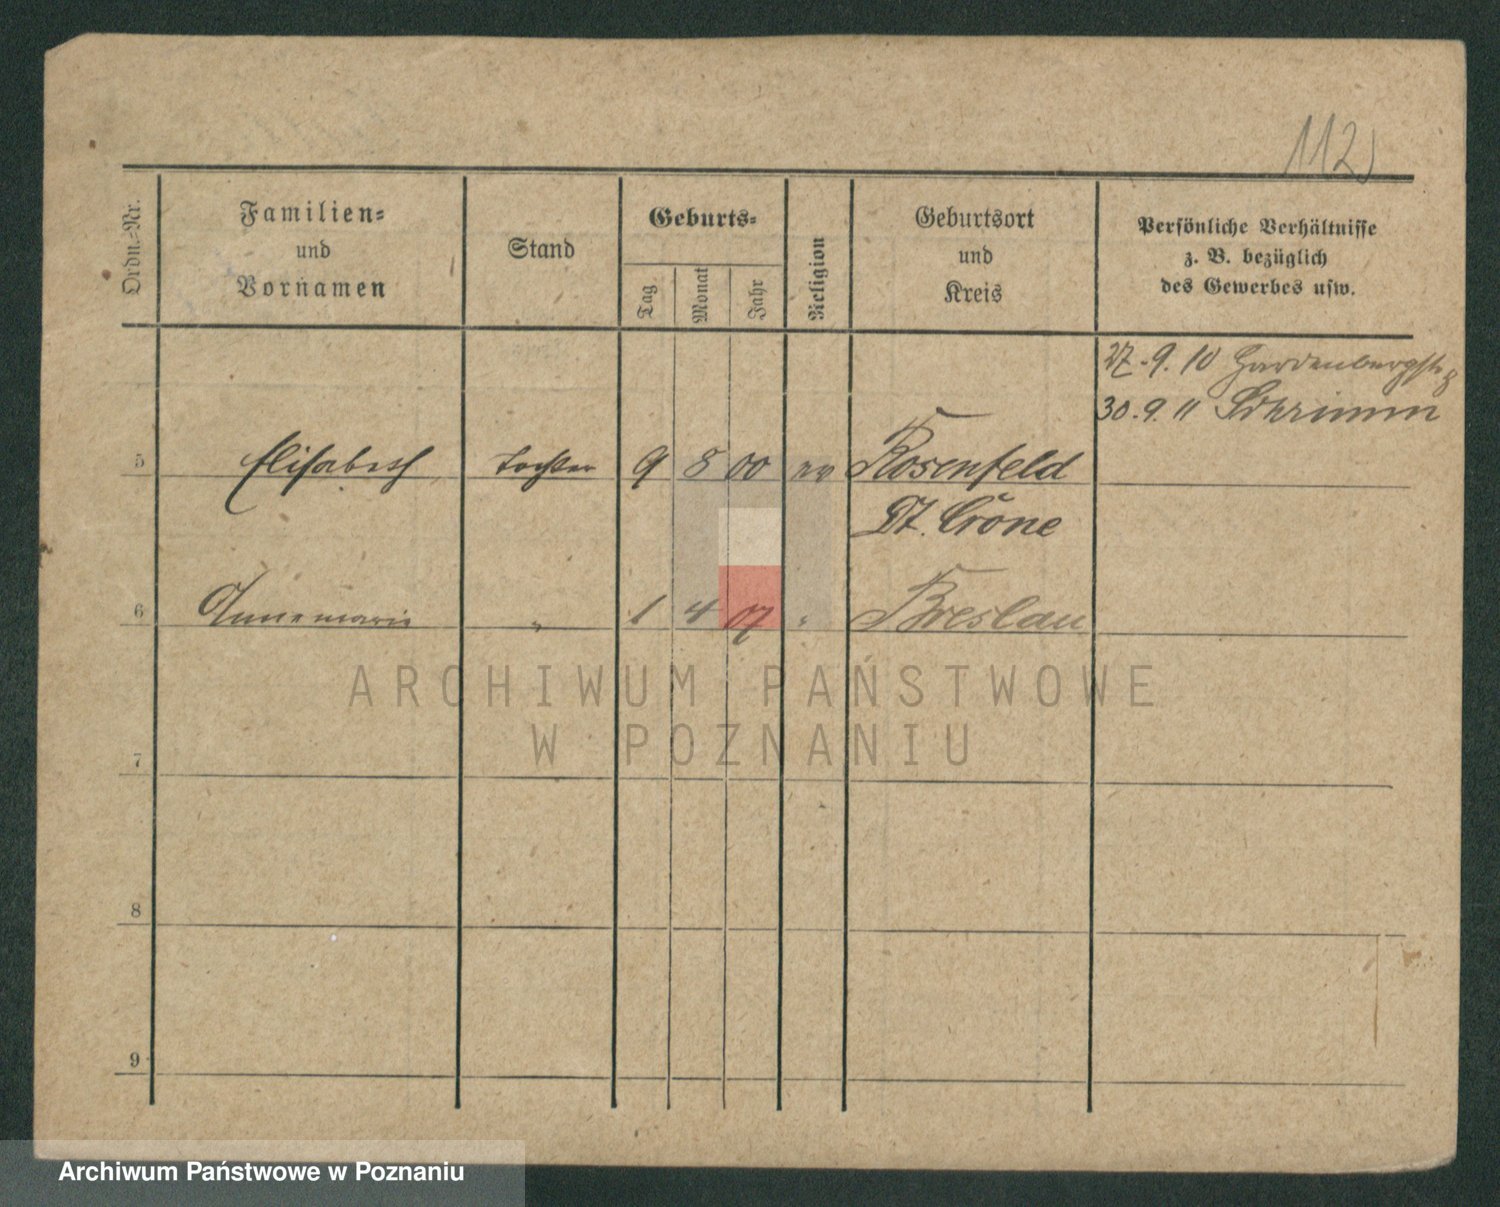 112
Ordn.-Nr.
Familien-
und
Vornamen
Stand
Geburts-
Tag
Monat
Jahr
Religion
Geburtsort
und
Kreis
Persönliche Verhältnisse
z. B. bezüglich
des Gewerbes usw.
27.9.10 Hardenbergstr. 8
30.9.11 Schrimm
5 Elisabeth Tochter 9 8 00 ev Rosenfeld
Dt. Crone
6 Annemarie " 1 4 07 " Breslau
ARCHIWUM PAŃSTWOWE
W POZNANIU
7
8
9
Archiwum Państwowe w Poznaniu